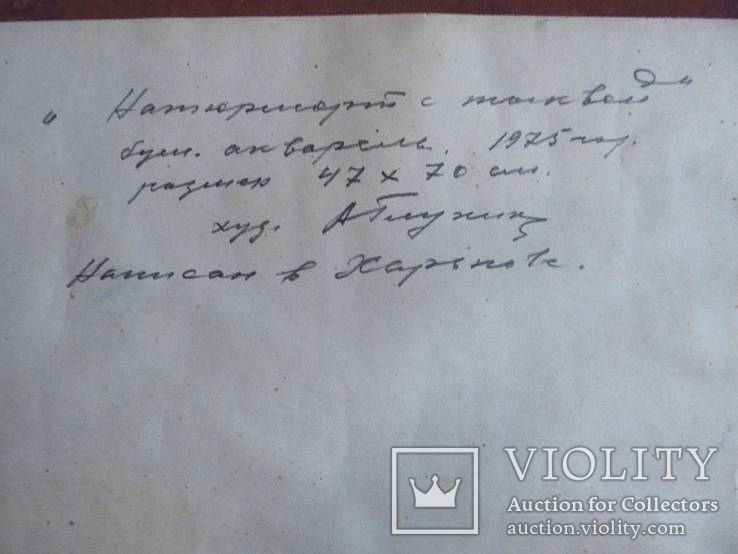 "Натюрморт с тыквой"
бум. акварель. 1975 год.
размер 47 х 70 см.
худ.
Написан в Харькове.
VIOLITY
Auction for Collectors
auction.violity.com